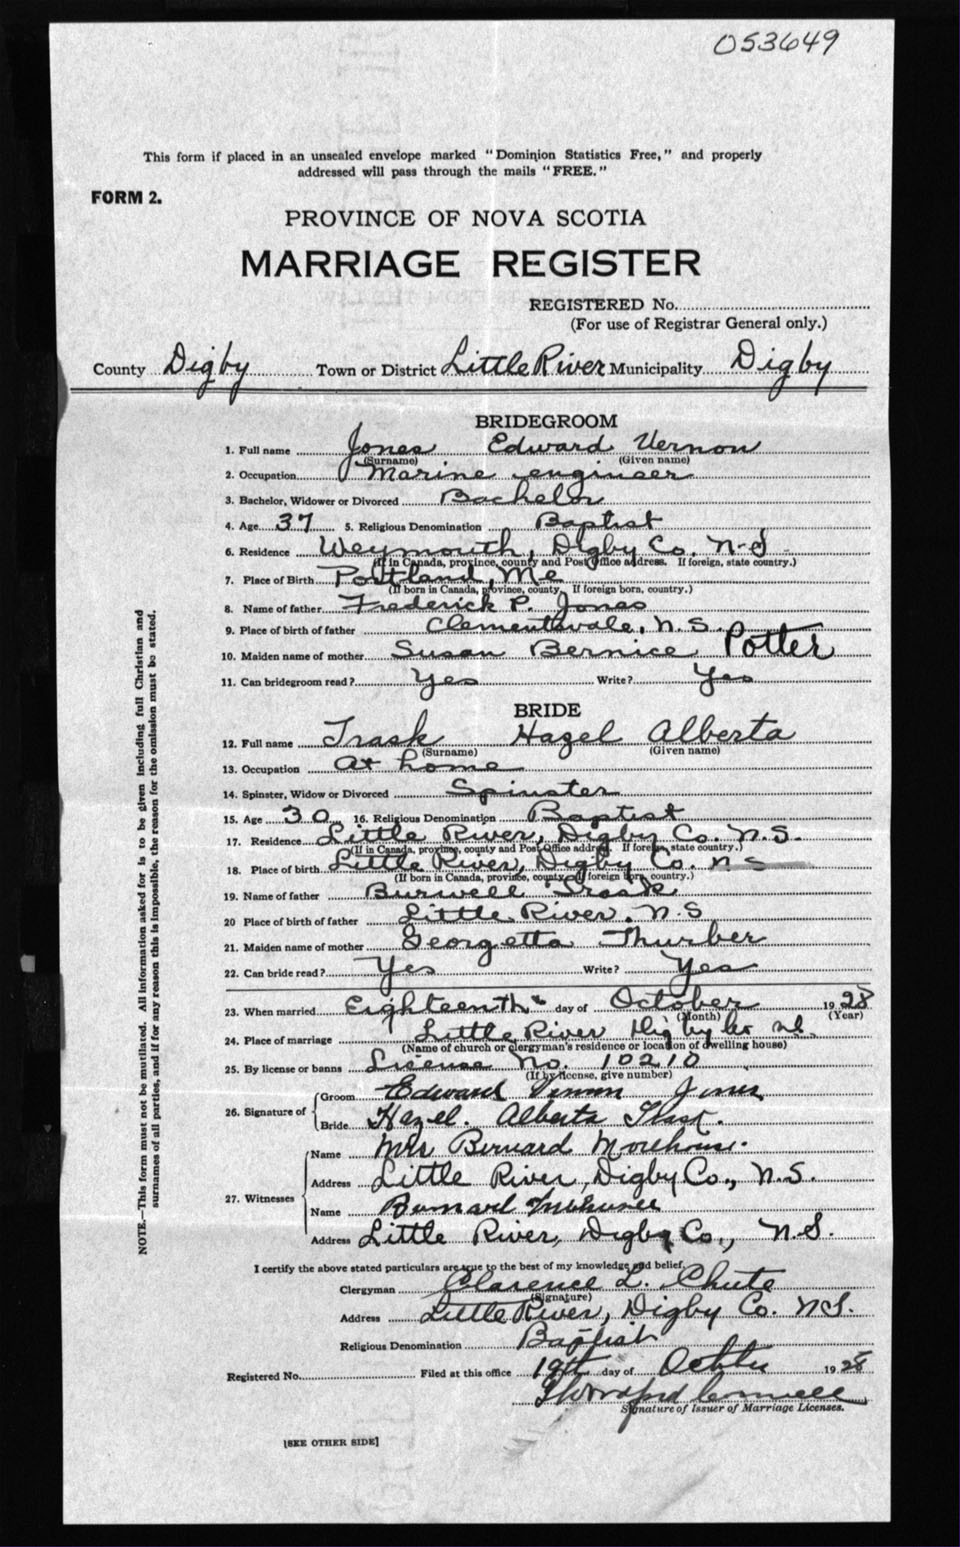 053649
This form if placed in an unsealed envelope marked "Dominion Statistics Free," and properly
addressed will pass through the mails "FREE."
FORM 2.
PROVINCE OF NOVA SCOTIA
MARRIAGE REGISTER
REGISTERED No.
(For use of Registrar General only.)
County Digby Town or District Little River Municipality Digby
BRIDEGROOM
1. Full name Jones Edward Vernon
(Surname) (Given name)
2. Occupation Marine engineer
3. Bachelor, Widower or Divorced Bachelor
4. Age 37 5. Religious Denomination Baptist
6. Residence Weymouth, Digby Co. N-S
(If in Canada, province, county and Post Office address. If foreign, state country.)
7. Place of Birth Portland, Me
(If born in Canada, province, county. If foreign born, country.)
8. Name of father Frederick P. Jones
9. Place of birth of father Clementsvale, N.S.
10. Maiden name of mother Susan Bernice Potter
11. Can bridegroom read? Yes Write? Yes
BRIDE
12. Full name Trask Hazel Alberta
(Surname) (Given name)
13. Occupation at home
14. Spinster, Widow or Divorced Spinster
15. Age 30 16. Religious Denomination Baptist
17. Residence Little River, Digby Co. N.S.
(If in Canada, province, county and Post Office address. If foreign state country.)
18. Place of birth Little River, Digby Co. N S
(If born in Canada, province, county. If foreign born, country.)
19. Name of father Burwell Trask
20 Place of birth of father Little River, N.S
21. Maiden name of mother Georgetta Thurber
22. Can bride read? Yes Write? Yes
23. When married Eighteenth day of October 1928
(Month) (Year)
24. Place of marriage Little River Digby Co N.S.
(Name of church or clergyman's residence or location of dwelling house)
25. By license or banns License No. 10210
(If by license, give number)
26. Signature of Groom Edward Vernon Jones
Bride Hazel. Alberta Trask.
27. Witnesses Name Mrs Bernard Morehouse.
Address Little River, Digby Co., N.S.
Name Bernard Morehouse
Address Little River, Digby Co., N.S.
I certify the above stated particulars are true to the best of my knowledge and belief.
Clergyman Clarence L. Chute
(Signature)
Address Little River, Digby Co. N.S.
Religious Denomination Baptist
Registered No. Filed at this office 19th day of October 1928
Signature of Issuer of Marriage Licenses.
[SEE OTHER SIDE]
NOTE.—This form must not be mutilated. All information asked for is to be given including full Christian and
surnames of all parties, and if for any reason this is impossible, the reason for the omission must be stated.